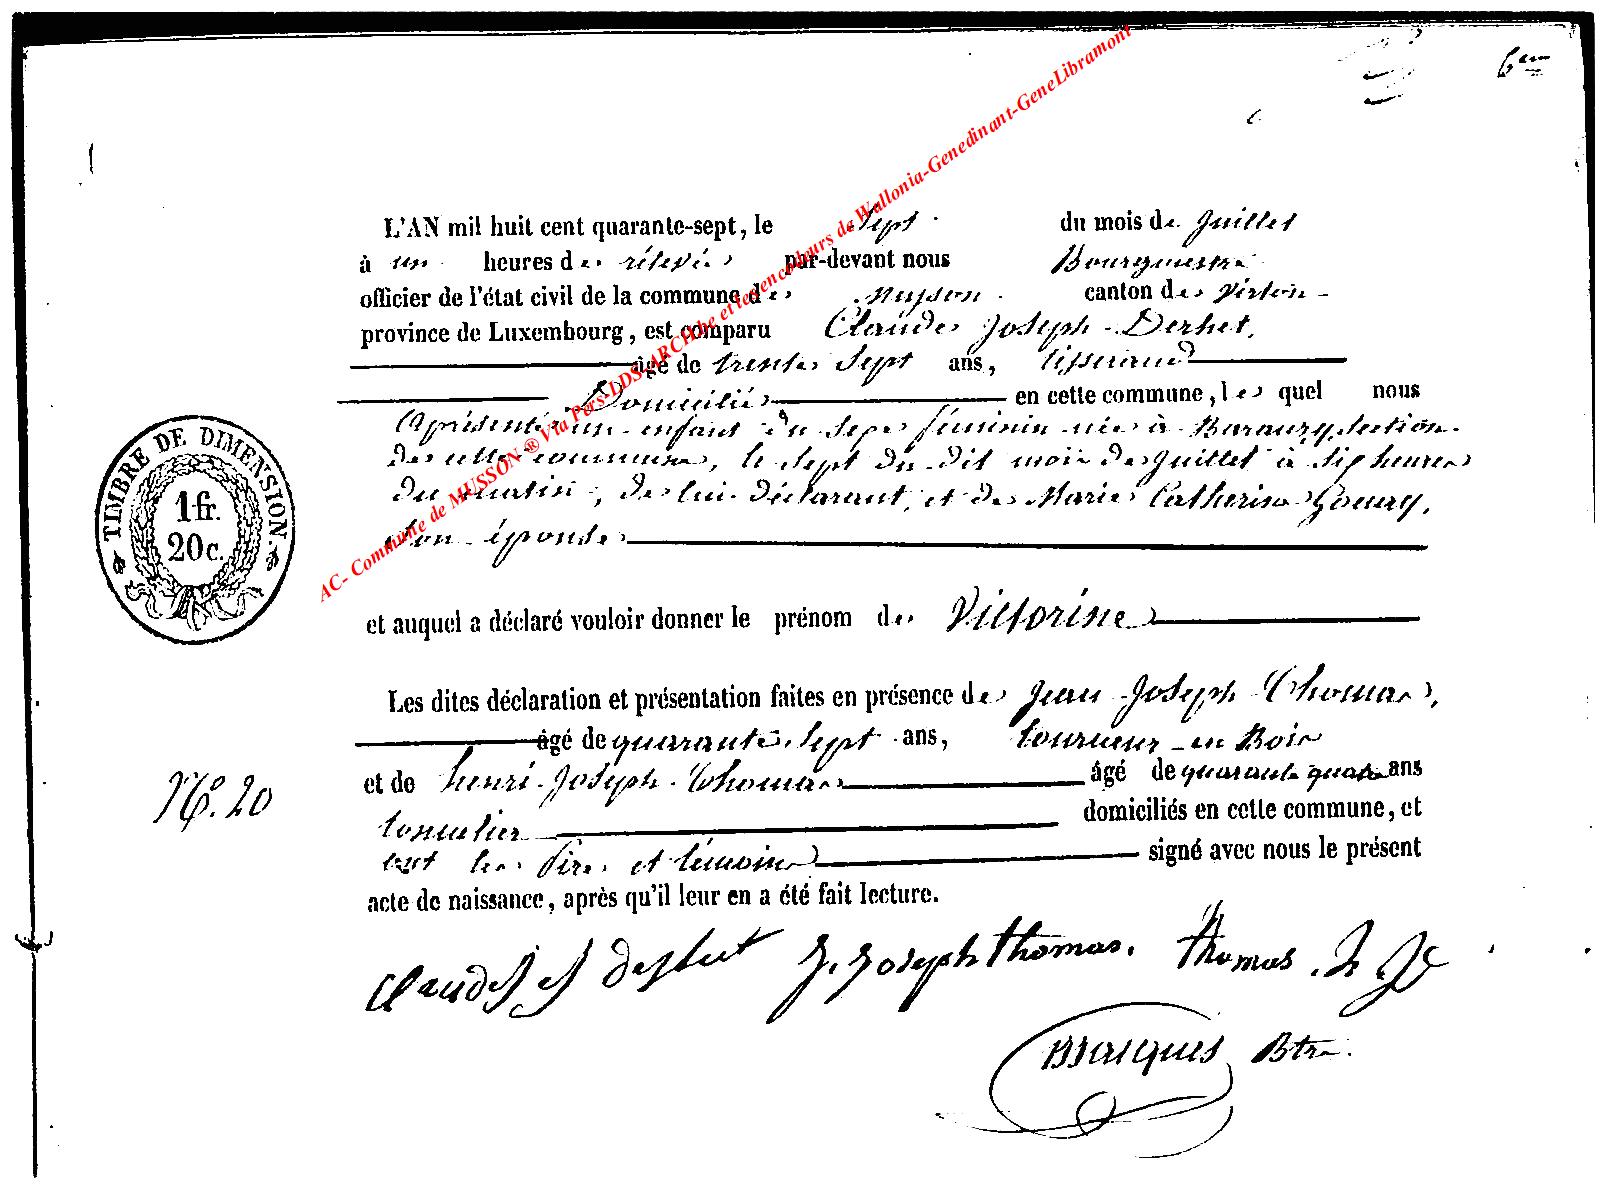 6em
L'AN mil huit cent quarante-sept, le sept du mois de Juillet
à un heures de rélevée par-devant nous Bourgmestre
officier de l'état civil de la commune de Musson canton de Virton
province de Luxembourg, est comparu Claude Joseph Derhet,
âgé de trente sept ans, tisserand
Domicilié en cette commune, le quel nous
a présenté un enfant du sexe féminin née à Baranzy, section
de cette commune, le sept du dit mois de Juillet à six heures
du matin, de lui déclarant, et de Marie Catherine Gouny,
son épouse
et auquel a déclaré vouloir donner le prénom de Victorine
Les dites déclaration et présentation faites en présence de Jean Joseph Thomas,
âgé de quarante sept ans, tourneur en Bois
et de henri Joseph Thomas âgé de quarante quatre ans
tonnelier domiciliés en cette commune, et
ont les Père et témoins signé avec nous le présent
acte de naissance, après qu'il leur en a été fait lecture.
J. Joseph thomas. thomas. h. J.
Btre.
TIMBRE DE DIMENSION.
1 fr.
20 c.
No. 20
AC- Commune de MUSSON ® Via Pers-LDS-ARCH.be et les encodeurs de Wallonia-Genedinant-GeneLibramont